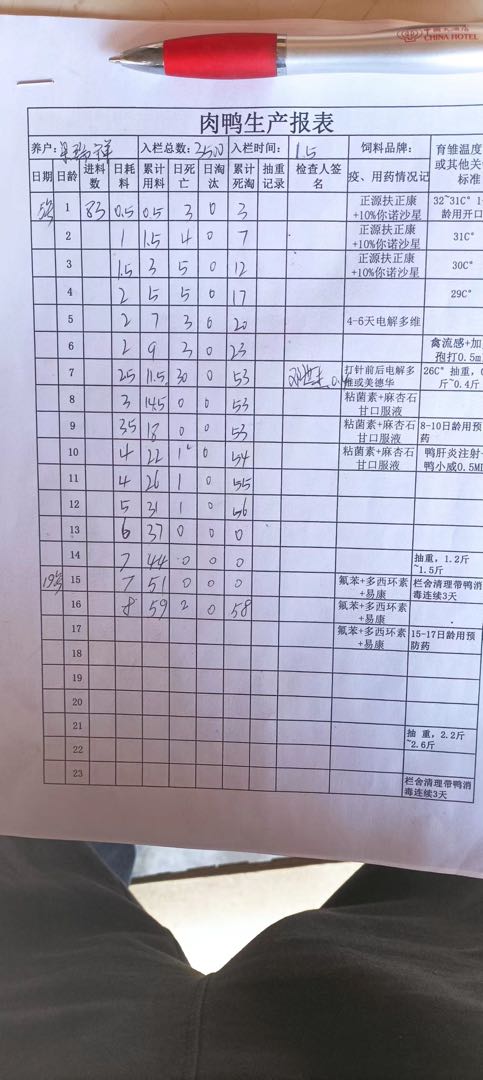 中国大酒店
CHINA HOTEL
肉鸭生产报表
养户: 入栏总数:3500 入栏时间: 1.5 饲料品牌: 育雏温度
日期 日龄 进料数 日耗料 累计用料 日死亡 日淘汰 累计死淘 抽重记录 检查人签名 疫、用药情况记 或其他关 标准
5号 1 83 0.5 0.5 3 0 3 正源扶正康+10%你诺沙星 32~31C° 1 龄用开口
2 1 1.5 4 0 7 正源扶正康+10%你诺星 31C°
3 1.5 3 5 0 12 正源扶正康+10%你诺星 30C°
4 2 5 5 0 17 29C°
5 2 7 3 0 20 4-6天电解多维
6 2 9 3 0 23 禽流感+加 孢打0.5m
7 25 11.5 30 0 53 打针前后电解多维或美德华 26C° 抽重，0 斤~0.4斤
8 3 14.5 0 0 53 粘菌素+麻杏石甘口服液
9 35 18 0 0 53 粘菌素+麻杏石甘口服液 8-10日龄用预 药
10 4 22 1 0 54 粘菌素+麻杏石甘口服液 鸭肝炎注射 鸭小威0.5M
11 4 26 1 0 55
12 5 31 1 0 56
13 6 37 0 0 0
14 7 44 0 0 0 抽重，1.2斤~1.5斤
19号 15 7 51 0 0 0 氟苯+多西环素+易康 栏舍清理带鸭消毒连续3天
16 8 59 2 0 58 氟苯+多西环素+易康
17 氟苯+多西环素+易康 15-17日龄用预防药
18
19
20
21 抽 重，2.2斤~2.6斤
22
23 栏舍清理带鸭消毒连续3天